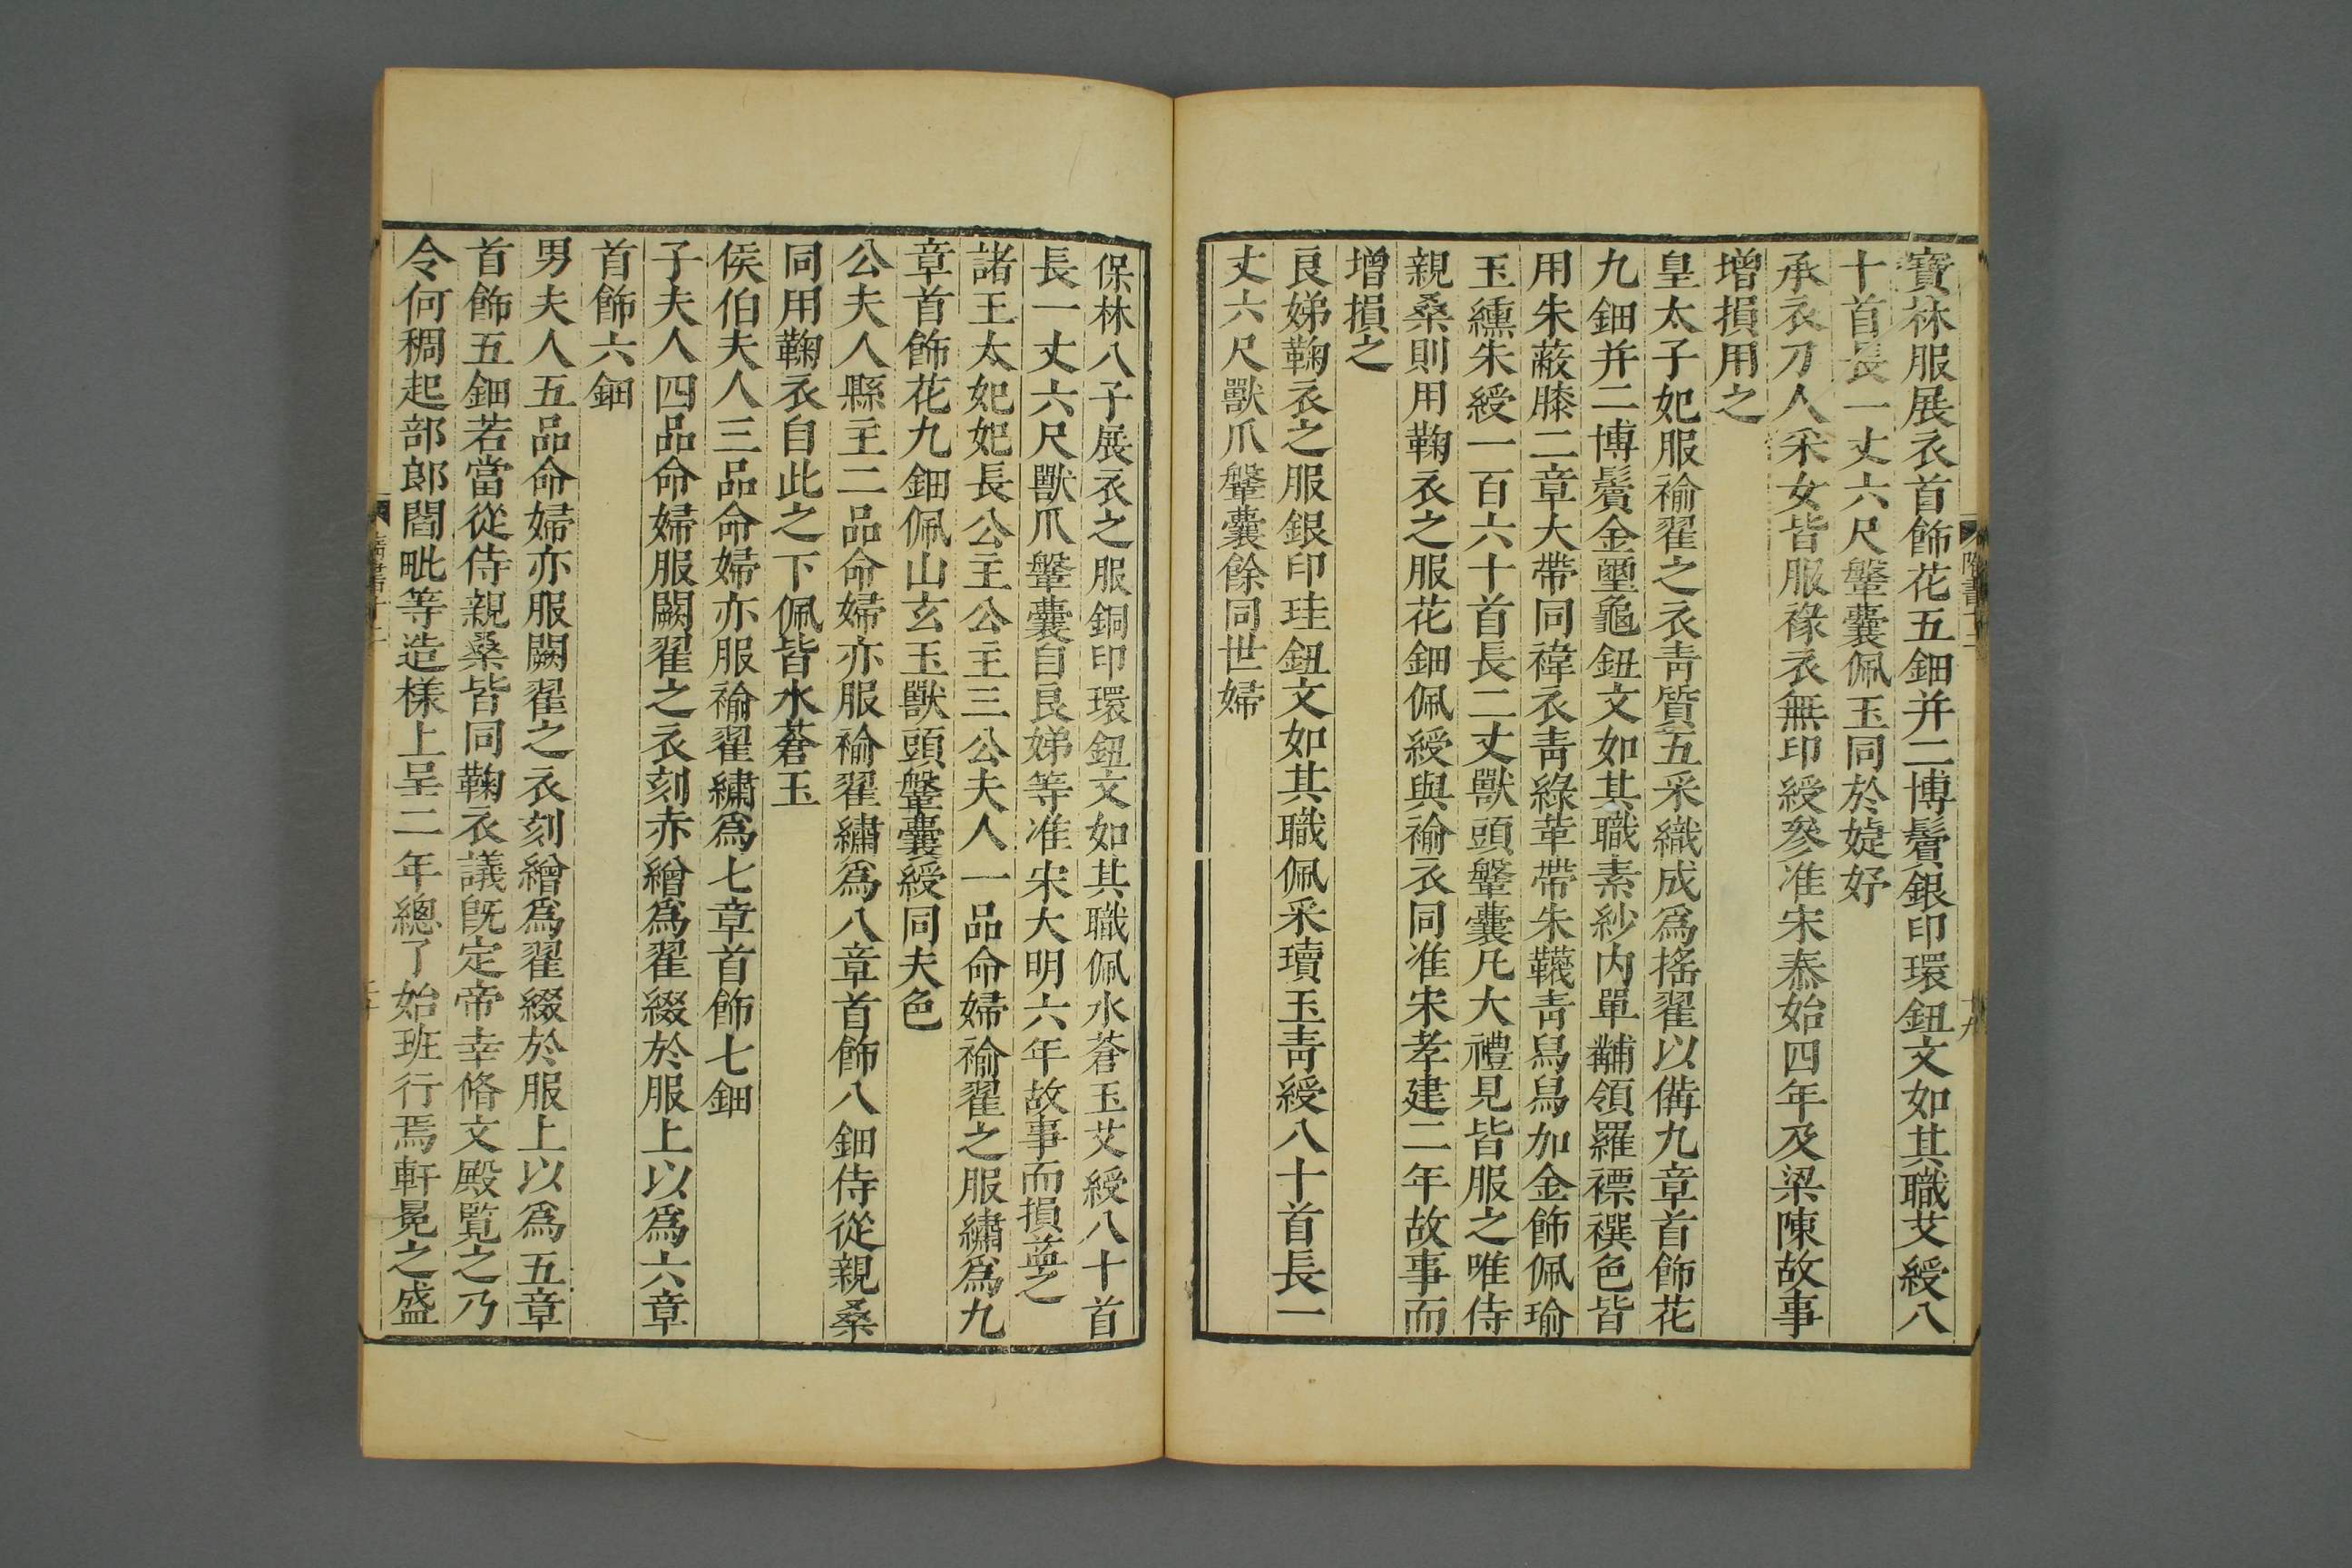 寶林服展衣首飾花五鈿并二博鬢銀印環鈕文如其職艾綬八
十首長一丈六尺鞶囊佩玉同於婕妤
承衣刀人采女皆服褖衣無印綬參准宋泰始四年及梁陳故事
增損用之
皇太子妃服褕翟之衣青質五采織成爲搖翟以備九章首飾花
九鈿并二博鬢金璽龜鈕文如其職素紗内單黼領羅褾襈色皆
用朱蔽膝二章大帶同褘衣青綠革帶朱韈青舄舄加金飾佩瑜
玉纁朱綬一百六十首長二丈獸頭鞶囊凡大禮見皆服之唯侍
親桑則用鞠衣之服花鈿佩綬與褕衣同准宋孝建二年故事而
增損之
良娣鞠衣之服銀印珪鈕文如其職佩采瓄玉青綬八十首長一
丈六尺獸爪鞶囊餘同世婦
保林八子展衣之服銅印環鈕文如其職佩水蒼玉艾綬八十首
長一丈六尺獸爪鞶囊自良娣等准宋大明六年故事而損益之
諸王太妃妃長公主公主三公夫人一品命婦褕翟之服繡爲九
章首飾花九鈿佩山玄玉獸頭鞶囊綬同夫色
公夫人縣主二品命婦亦服褕翟繡爲八章首飾八鈿侍從親桑
同用鞠衣自此之下佩皆水蒼玉
侯伯夫人三品命婦亦服褕翟繡爲七章首飾七鈿
子夫人四品命婦服闕翟之衣刻赤繒爲翟綴於服上以爲六章
首飾六鈿
男夫人五品命婦亦服闕翟之衣刻繒爲翟綴於服上以爲五章
首飾五鈿若當從侍親桑皆同鞠衣議旣定帝幸脩文殿覽之乃
令何稠起部郎閻毗等造樣上呈二年總了始班行焉軒冕之盛